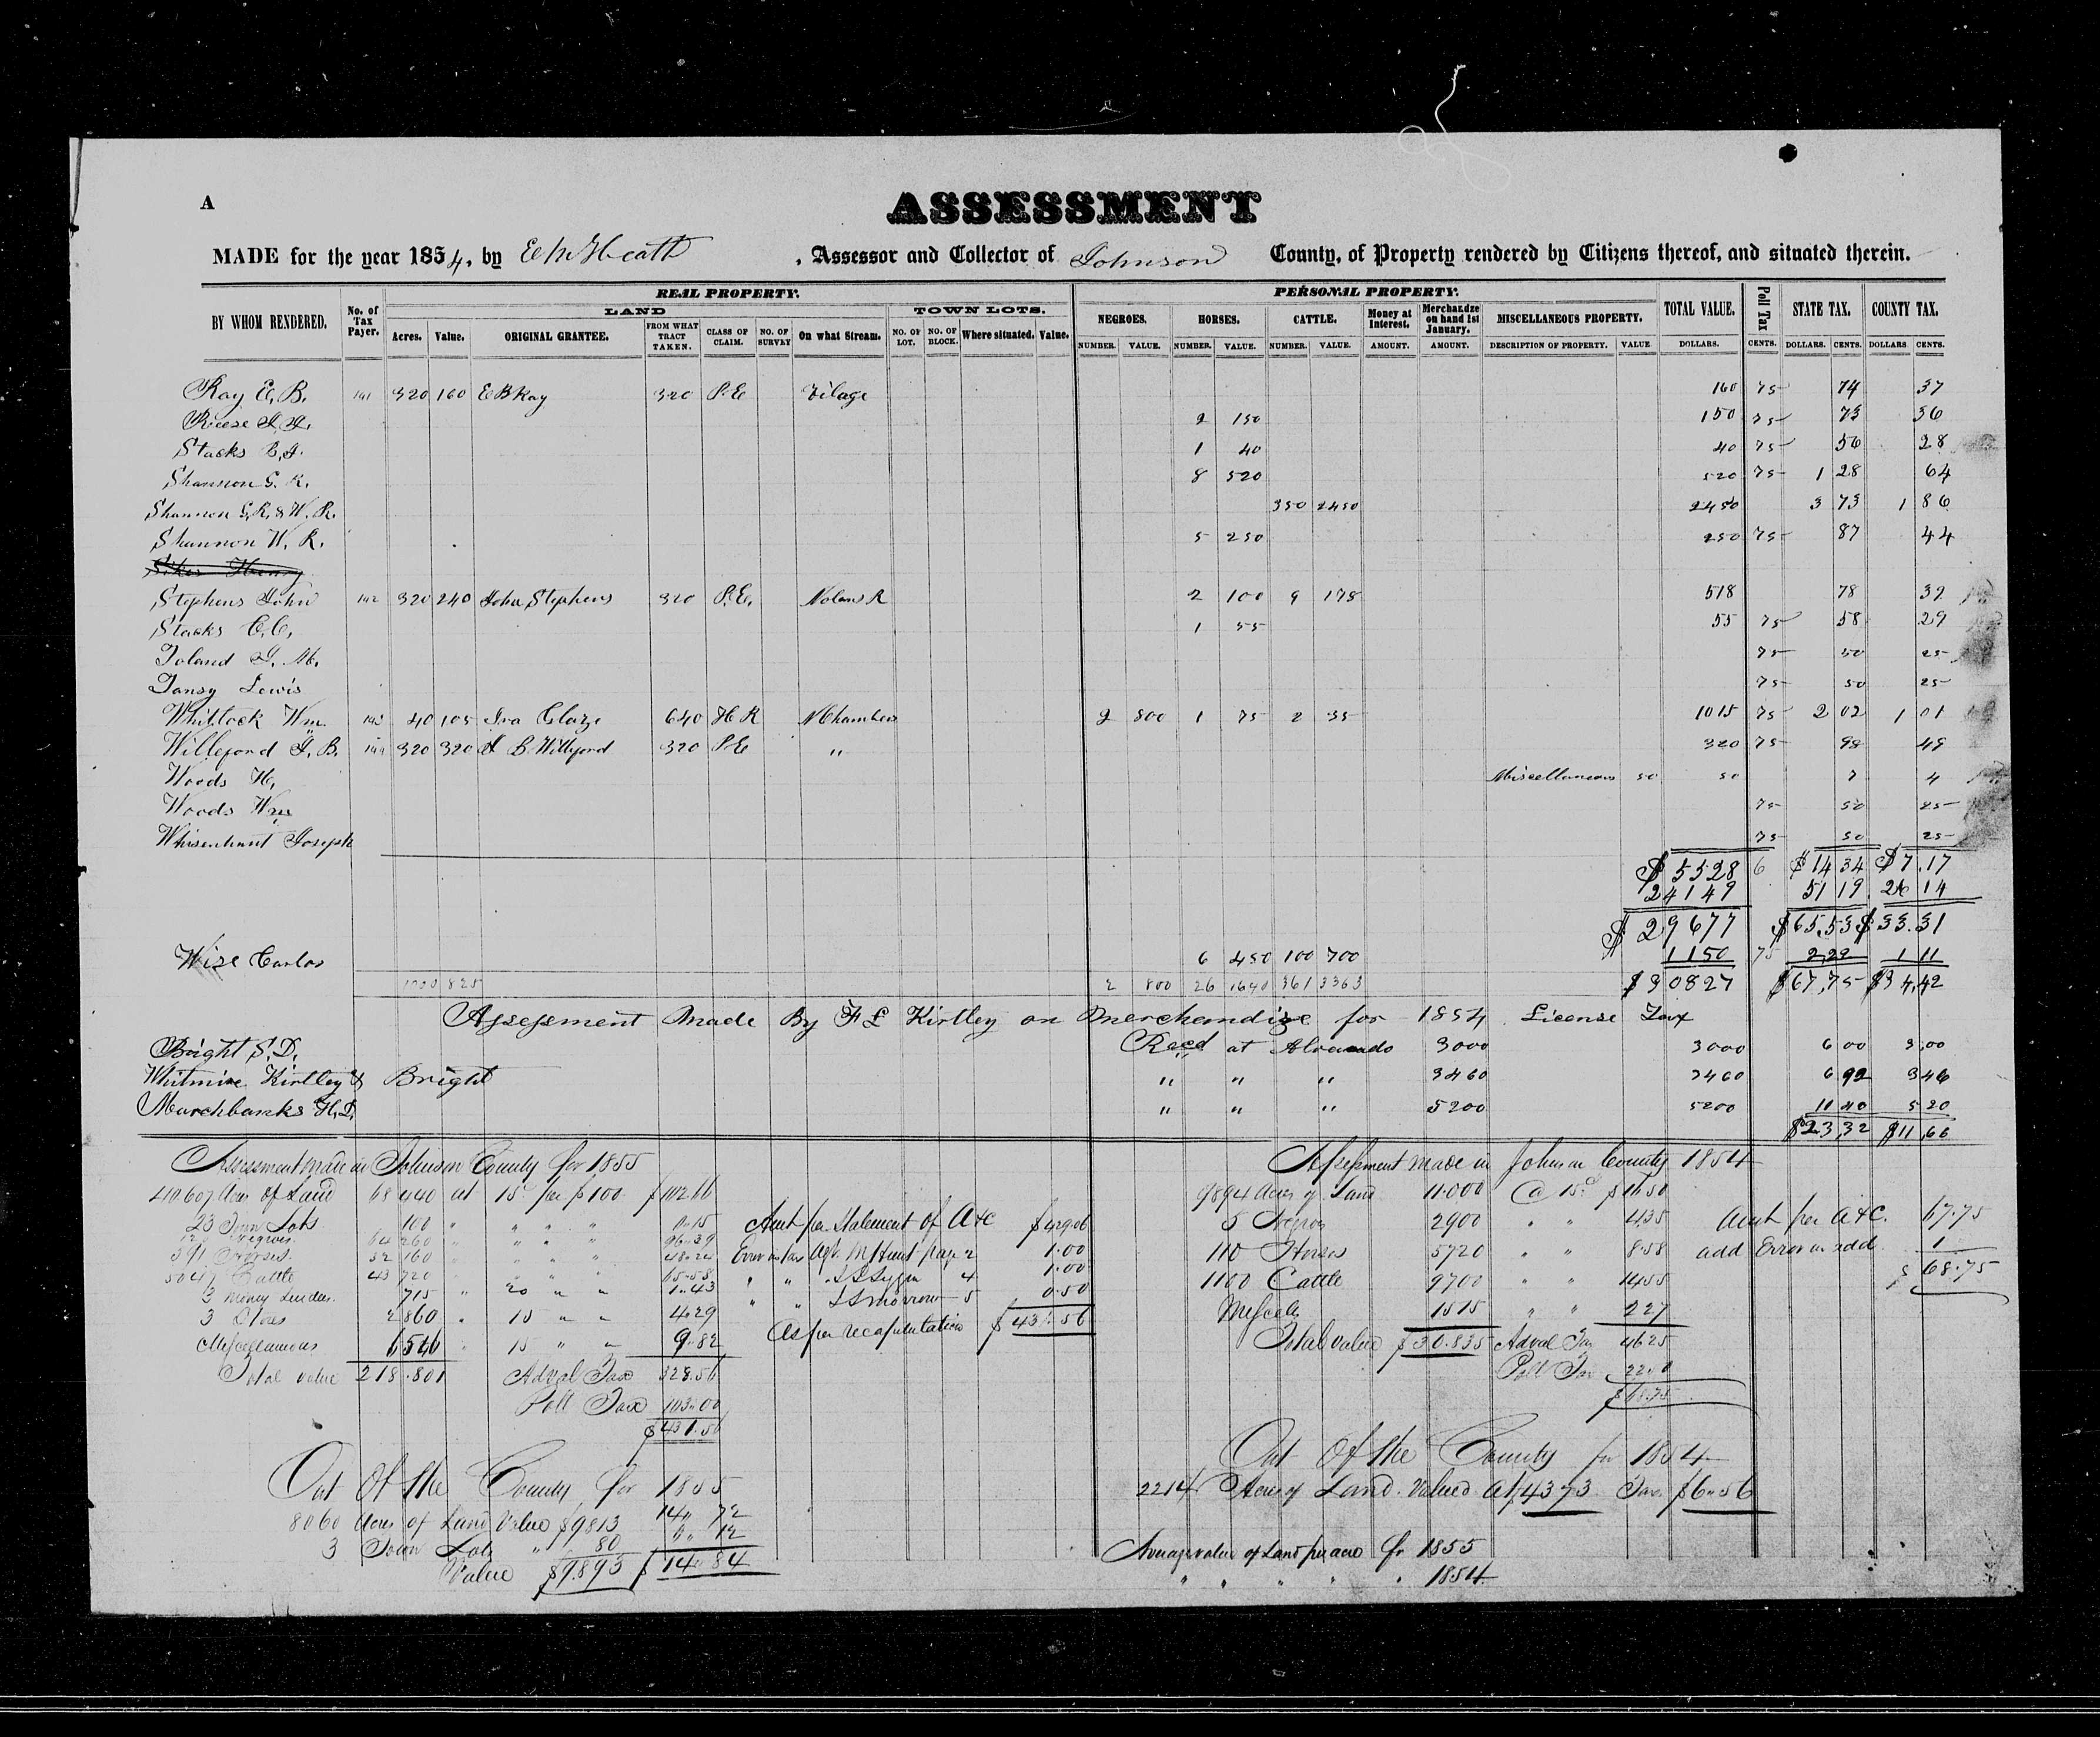 A
ASSESSMENT
MADE for the year 1854, by E M Heath, Assessor and Collector of Johnson County, of Property rendered by Citizens thereof, and situated therein.
REAL PROPERTY. PERSONAL PROPERTY.
BY WHOM RENDERED. No. of Tax Payer. LAND TOWN LOTS. NEGROES. HORSES. CATTLE. Money at Interest. Merchandze on hand 1st January. MISCELLANEOUS PROPERTY. TOTAL VALUE. Poll Tax STATE TAX. COUNTY TAX.
Acres. Value. ORIGINAL GRANTEE. FROM WHAT TRACT TAKEN. CLASS OF CLAIM. NO. OF SURVEY On what Stream. NO. OF LOT. NO. OF BLOCK. Where situated. Value. NUMBER. VALUE. NUMBER. VALUE. NUMBER. VALUE. AMOUNT. AMOUNT. DESCRIPTION OF PROPERTY. VALUE DOLLARS. CENTS. DOLLARS. CENTS. DOLLARS CENTS.
Ray E. B. 191 320 160 E B Ray 320 P.E 160 75 74 37
Reese 2 150 150 75 73 36
Stacks 1 40 40 75 56 28
Shannon G. R. 8 520 520 75 1 28 64
Shannon G. R. & W. R. 350 2450 2450 3 73 1 86
Shannon W. R. 5 250 250 75 87 44
Stephens John 192 320 240 John Stephens 320 P.E. Nolans R 2 100 9 178 518 78 39
Stacks C. C. 1 55 55 75 58 29
Toland J. M. 75 50 25
Tansy Lewis 75 50 25
Whitlock Wm. 193 40 105 Ira Glaze 640 H R N Chambers 2 800 1 75 2 35 1015 75 2 02 1 01
Willeford J. B. 194 320 320 J B Willeford 320 P.E " 320 75 98 49
Woods H. Miscellaneous 50 50 7 4
Woods Wm 75 50 25
Whisenhunt Joseph 75 50 25
$ 5528 6 $ 14 34 $ 7.17
24149 51 19 26 14
$ 29677 $65.53 $33.31
Wise Carlos 6 450 100 700 1150 75 2,22 1 11
1000 825 2 800 26 1640 361 3363 $ 30827 $67,75 $34,42
Assessment Made By F L Kirtley on Merchandize for 1854 License Tax
Bright S. D. Recd at Alvarado 3000 3000 6 00 3,00
Whitmire Kirtley & Bright " " " 3460 3460 6 92 3 46
Marchbanks H. D. " " " 5200 5200 10 40 5 20
$23,32 $11,66
Assessment made in Johnson County for 1855
110607 Acres of Land 68440 at 15c per $100 $102.66
23 Town Lots 100 " " " " 0.15
Negroes 64260 " " " " 96.39
391 Horses 32160 " " " " 48.24
5047 Cattle 43720 " " " " 65.58
3 Money Lenders 715 " 20 " " 1.43
3 Stores 2860 " 15 " " 4.29
Miscellaneous 6546 " 15 " " 9.82
Total value 218.801 Adval Tax 328.56
Poll Tax 103.00
$431.56
Amt per Statement of A&C $429.06
Error in tax agt. M Hunt page 2 1.00
" " 4 1.00
" " Morrow 5 0.50
As per recapitulation $431.56
Assessment made in Johnson County 1854
9894 Acres of Land 11.000 @ 15c $16.50
5 Negroes 2900 " " 4.35
110 Horses 5720 " " 8.58
1100 Cattle 9700 " " 14.55
Miscell 1515 " " 2 27
Total value $30.835 Adval Tax 46.25
Poll Tax 22.50
$68.75
Amt per A&C. 67.75
add Error in add 1
$ 68.75
Out Of the County for 1855
8060 Acres of Land Value $9813 14" 72
3 Town Lots " 80 " 12
Value $9.893 $14.84
Out Of the County for 1854
2214 Acres of Land Valued at $4373 Tax $6.56
Average value of Land per acre for 1855
" " " " " 1854